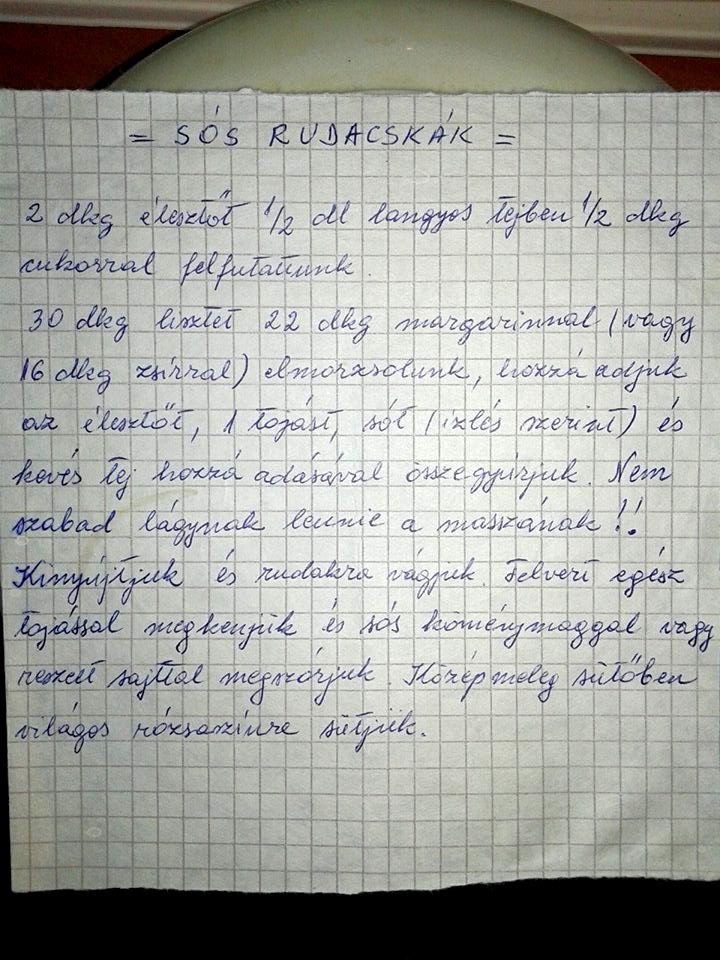 = SÓS RUDACSKÁK =
2 dkg élesztőt 1/2 dl langyos tejben 1/2 dkg
cukorral felfuttatunk.
30 dkg lisztet 22 dkg margarinnal (vagy
16 dkg zsírral) elmorzsolunk, hozzá adjuk
az élesztőt, 1 tojást, sót (izlés szerint) és
kevés tej hozzá adásával összegyúrjuk. Nem
szabad lágynak lennie a masszának!!
Kinyújtjuk és rudakra vágjuk. Felvert egész
tojással megkenjük és sós köménymaggal vagy
reszelt sajttal megszórjuk. Középmeleg sütőben
világos rózsaszínre sütjük.